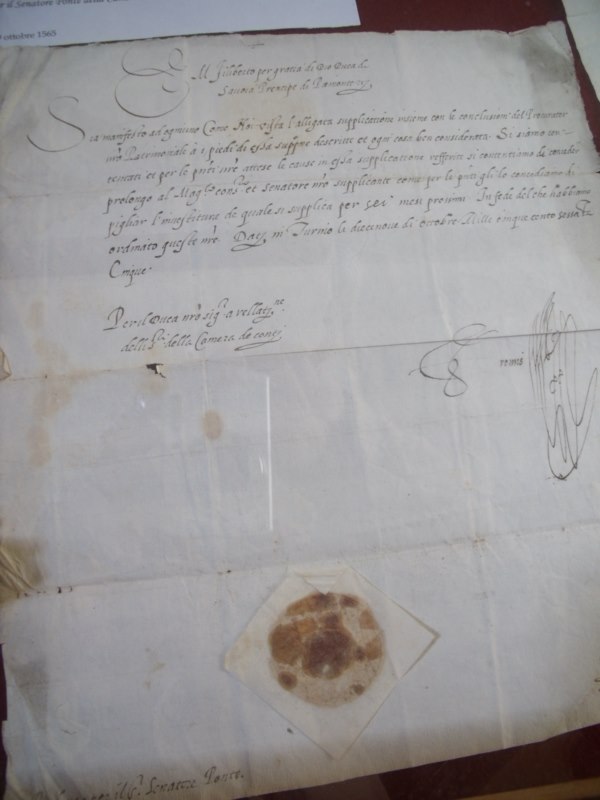 r il Senatore Ponte della
ottobre 1565
EM. Filiberto per gratia di Dio Duca di
Savoia Prencipe di Piemonte etc.
Sia manifesto ad ogniuno Como Noi vista l'alligata supplicatione insieme con le conclusioni del Procurator
nrõ Patrimoniale à i piedi di essa suppne descritte et ogni cosa ben considerata. Si siamo con-
tentati et per le pnti nrẽ attese le cause in essa supplicatione refferite si contentiamo di conceder
prolongo al Magco consre et Senatore nrõ supplicante come per le pnti gli lo concediamo di
pigliar l'investitura de quale si supplica per sei mesi prossimi In fede del che habbiamo
ordinato queste nrẽ Datẽ in Turino le diecinove di ottobre Mille cinque cento sessanta
Cinque.
Per il Duca nrõ sigr a rellatne
delli della Camera de conti
remis
Senatore Ponte.